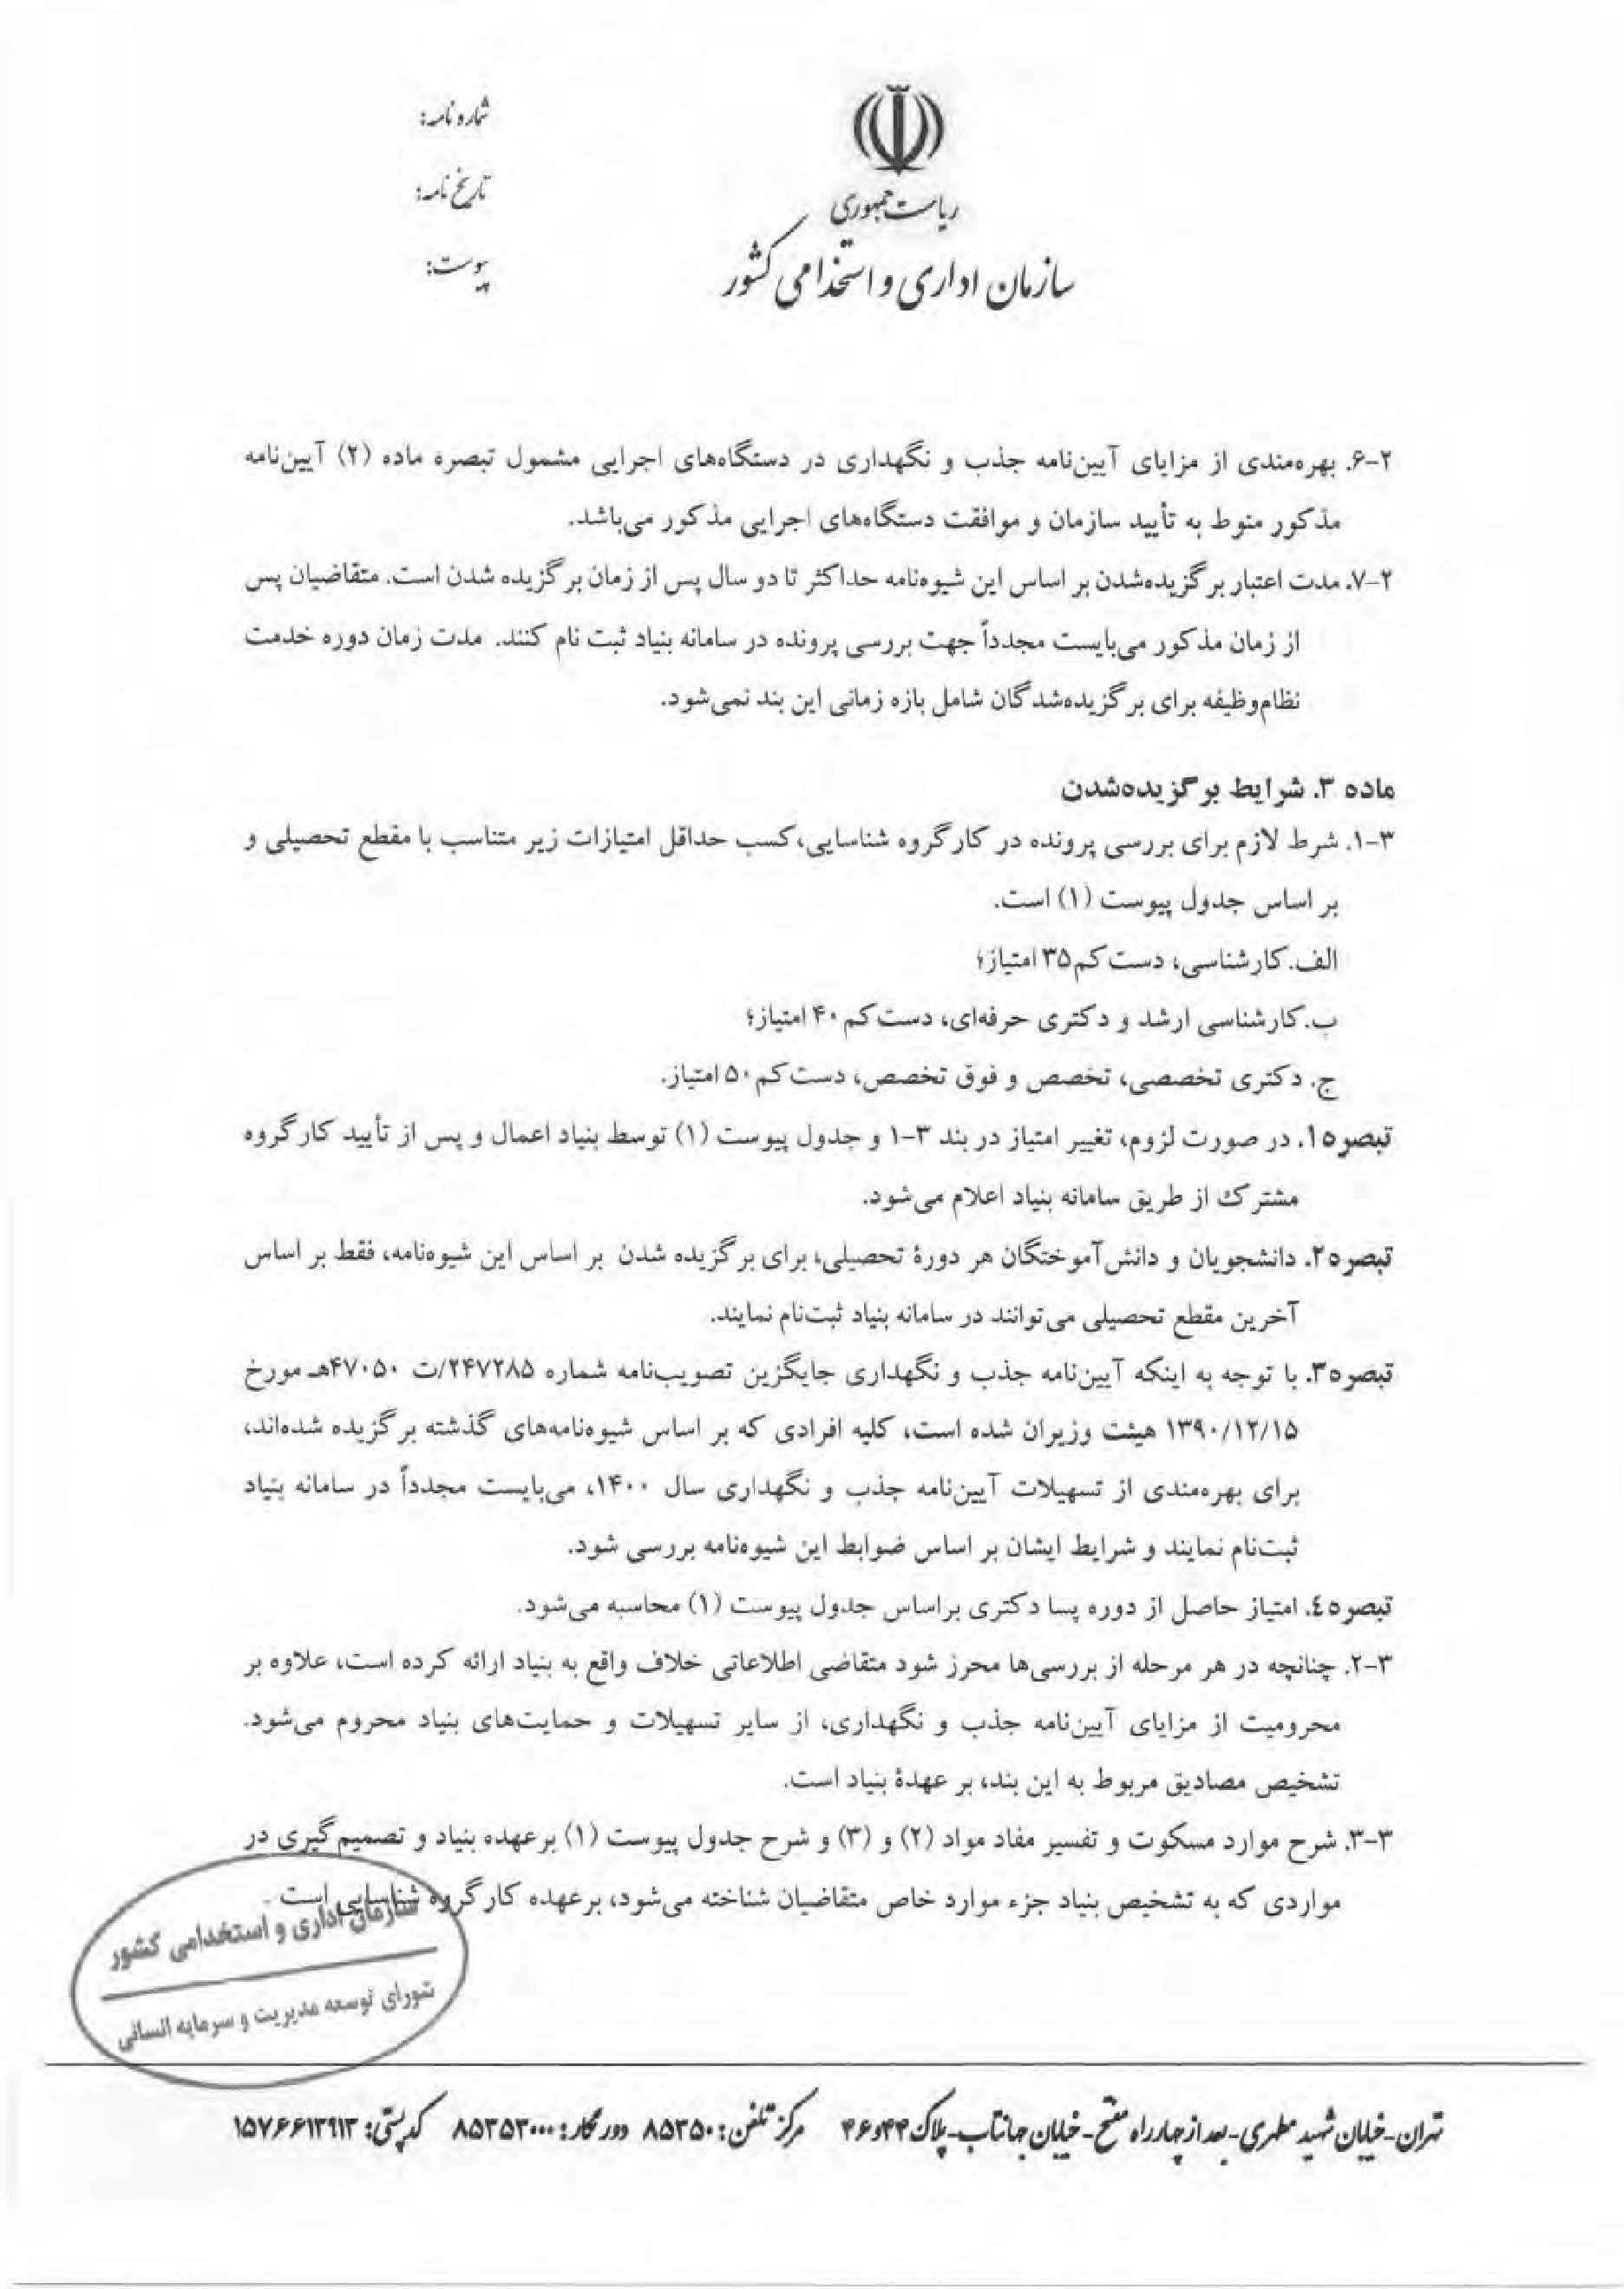 ریاست جمهوری
سازمان اداری و استخدامی کشور
شماره نامه:
تاریخ نامه:
پیوست:
۲-۶. بهره‌مندی از مزایای آیین‌نامه جذب و نگهداری در دستگاه‌های اجرایی مشمول تبصره ماده (۲) آیین‌نامه
مذکور منوط به تأیید سازمان و موافقت دستگاه‌های اجرایی مذکور می‌باشد.
۲-۷. مدت اعتبار برگزیده‌شدن بر اساس این شیوه‌نامه حداکثر تا دو سال پس از زمان برگزیده شدن است. متقاضیان پس
از زمان مذکور می‌بایست مجدداً جهت بررسی پرونده در سامانه بنیاد ثبت نام کنند. مدت زمان دوره خدمت
نظام‌وظیفه برای برگزیده‌شدگان شامل بازه زمانی این بند نمی‌شود.
ماده ۳. شرایط برگزیده‌شدن
۳-۱. شرط لازم برای بررسی پرونده در کارگروه شناسایی،کسب حداقل امتیازات زیر متناسب با مقطع تحصیلی و
بر اساس جدول پیوست (۱) است.
الف.کارشناسی، دست‌کم ۳۵ امتیاز؛
ب.کارشناسی ارشد و دکتری حرفه‌ای، دست‌کم ۴۰ امتیاز؛
ج. دکتری تخصصی، تخصص و فوق تخصص، دست‌کم ۵۰ امتیاز.
تبصره۱. در صورت لزوم، تغییر امتیاز در بند ۳-۱ و جدول پیوست (۱) توسط بنیاد اعمال و پس از تأیید کارگروه
مشترک از طریق سامانه بنیاد اعلام می‌شود.
تبصره۲. دانشجویان و دانش‌آموختگان هر دورۀ تحصیلی، برای برگزیده شدن بر اساس این شیوه‌نامه، فقط بر اساس
آخرین مقطع تحصیلی می‌توانند در سامانه بنیاد ثبت‌نام نمایند.
تبصره۳. با توجه به اینکه آیین‌نامه جذب و نگهداری جایگزین تصویب‌نامه شماره ۲۴۷۲۸۵/ت ۴۷۰۵۰هـ مورخ
۱۳۹۰/۱۲/۱۵ هیئت وزیران شده است، کلیه افرادی که بر اساس شیوه‌نامه‌های گذشته برگزیده شده‌اند،
برای بهره‌مندی از تسهیلات آیین‌نامه جذب و نگهداری سال ۱۴۰۰، می‌بایست مجدداً در سامانه بنیاد
ثبت‌نام نمایند و شرایط ایشان بر اساس ضوابط این شیوه‌نامه بررسی شود.
تبصره٤. امتیاز حاصل از دوره پسا دکتری براساس جدول پیوست (۱) محاسبه می‌شود.
۳-۲. چنانچه در هر مرحله از بررسی‌ها محرز شود متقاضی اطلاعاتی خلاف واقع به بنیاد ارائه کرده است، علاوه بر
محرومیت از مزایای آیین‌نامه جذب و نگهداری، از سایر تسهیلات و حمایت‌های بنیاد محروم می‌شود.
تشخیص مصادیق مربوط به این بند، بر عهدۀ بنیاد است.
۳-۳. شرح موارد مسکوت و تفسیر مفاد مواد (۲) و (۳) و شرح جدول پیوست (۱) برعهده بنیاد و تصمیم‌گیری در
مواردی که به تشخیص بنیاد جزء موارد خاص متقاضیان شناخته می‌شود، برعهده کارگروه شناسایی است.
سازمان اداری و استخدامی کشور
شورای توسعه مدیریت و سرمایه انسانی
تهران-خیابان شهید مطهری-بعد از چهارراه مفتح-خیابان جهانتاب-پلاک ۴۴و۴۶ مرکز تلفن: ۸۵۳۵۰ دورنگار: ۸۵۳۵۳۰۰۰ کد پستی: ۱۵۷۶۶۱۳۹۱۳